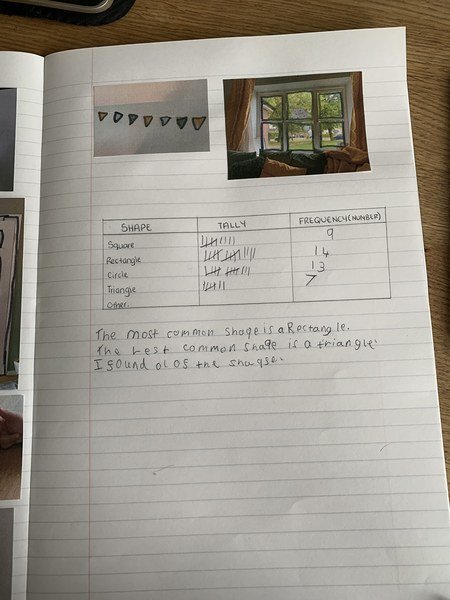 SHAPE TALLY FREQUENCY(NUMBER)
Square 9
Rectangle 14
Circle 13
Triangle 7
Other.
The most common shape is a Rectangle.
The lest common shape is a triangle.
I found al of the shapse.